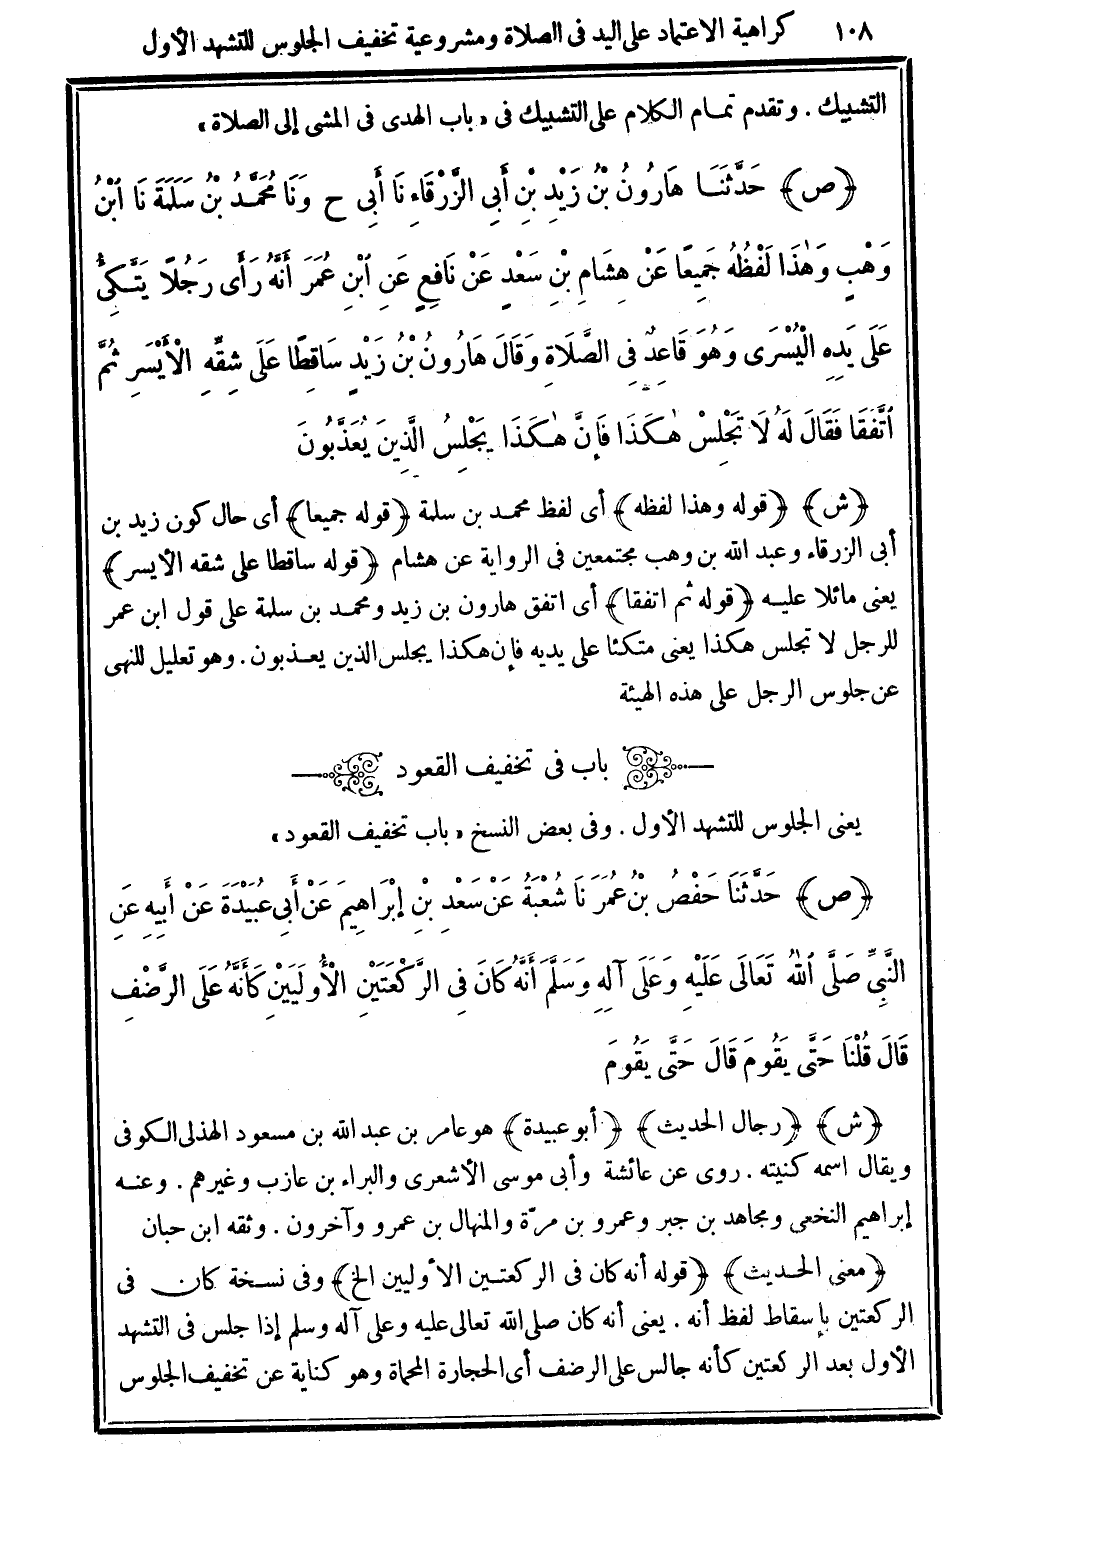 ١٠٨ كراهية الاعتماد على اليد فى الصلاة ومشروعية تخفيف الجلوس للتشهد الأول
التشبيك . وتقدم تمام الكلام على التشبيك فى « باب الهدى فى المشى إلى الصلاة »
﴿ص﴾ حَدَّثَنَا هَارُونُ بْنُ زَيْدِ بْنِ أَبِى الزَّرْقَاءِ نَا أَبِى ح وَنَا مُحَمَّدُ بْنُ سَلَمَةَ نَا ٱبْنُ
وَهْبٍ وَهٰذَا لَفْظُهُ جَمِيعًا عَنْ هِشَامِ بْنِ سَعْدٍ عَنْ نَافِعٍ عَنِ ٱبْنِ عُمَرَ أَنَّهُ رَأَى رَجُلًا يَتَّكِىُّ
عَلَى يَدِهِ الْيُسْرَى وَهُوَ قَاعِدٌ فِى الصَّلَاةِ وَقَالَ هَارُونُ بْنُ زَيْدٍ سَاقِطًا عَلَى شِقِّهِ الْأَيْسَرِ ثُمَّ
ٱتَّفَقَا فَقَالَ لَهُ لَا تَجْلِسْ هٰكَذَا فَإِنَّ هٰكَذَا يَجْلِسُ الَّذِينَ يُعَذَّبُونَ
﴿ش﴾ ﴿قوله وهذا لفظه﴾ أى لفظ محمد بن سلمة ﴿قوله جميعا﴾ أى حال كون زيد بن
أبى الزرقاء وعبد الله بن وهب مجتمعين فى الرواية عن هشام ﴿قوله ساقطا على شقه الأيسر﴾
يعنى مائلا عليه ﴿قوله ثم اتفقا﴾ أى اتفق هارون بن زيد ومحمد بن سلمة على قول ابن عمر
للرجل لا تجلس هكذا يعنى متكئا على يديه فإن هكذا يجلس الذين يعذبون . وهو تعليل للنهى
عن جلوس الرجل على هذه الهيئة
باب فى تخفيف القعود
يعنى الجلوس للتشهد الأول . وفى بعض النسخ « باب تخفيف القعود »
﴿ص﴾ حَدَّثَنَا حَفْصُ بْنُ عُمَرَ نَا شُعْبَةُ عَنْ سَعْدِ بْنِ إِبْرَاهِيمَ عَنْ أَبِى عُبَيْدَةَ عَنْ أَبِيهِ عَنِ
النَّبِىِّ صَلَّى ٱللهُ تَعَالَى عَلَيْهِ وَعَلَى آلِهِ وَسَلَّمَ أَنَّهُ كَانَ فِى الرَّكْعَتَيْنِ الْأُولَيَيْنِ كَأَنَّهُ عَلَى الرَّضْفِ
قَالَ قُلْنَا حَتَّى يَقُومَ قَالَ حَتَّى يَقُومَ
﴿ش﴾ ﴿رجال الحديث﴾ ﴿أبو عبيدة﴾ هو عامر بن عبد الله بن مسعود الهذلى الكوفى
ويقال اسمه كنيته . روى عن عائشة وأبى موسى الأشعرى والبراء بن عازب وغيرهم . وعنه
إبراهيم النخعى ومجاهد بن جبر وعمرو بن مرّة والمنهال بن عمرو وآخرون . وثقه ابن حبان
﴿معنى الحديث﴾ ﴿قوله أنه كان فى الركعتين الأوليين الخ﴾ وفى نسخة كان فى
الركعتين بإسقاط لفظ أنه . يعنى أنه كان صلى الله تعالى عليه وعلى آله وسلم إذا جلس فى التشهد
الأول بعد الركعتين كأنه جالس على الرضف أى الحجارة المحماة وهو كناية عن تخفيف الجلوس